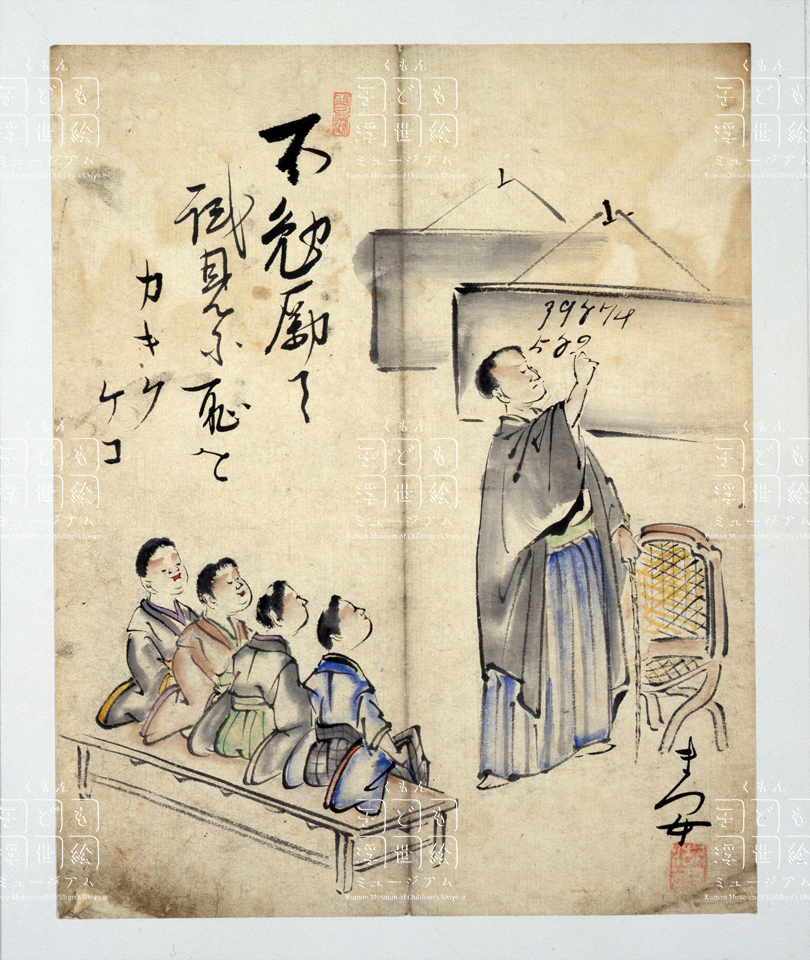 不勉励て
試見尓恥を
カキク
ケコ
まつ女
くもん
子ども
浮世絵
ミュージアム
Kumon Museum of Children's Ukiyo-e